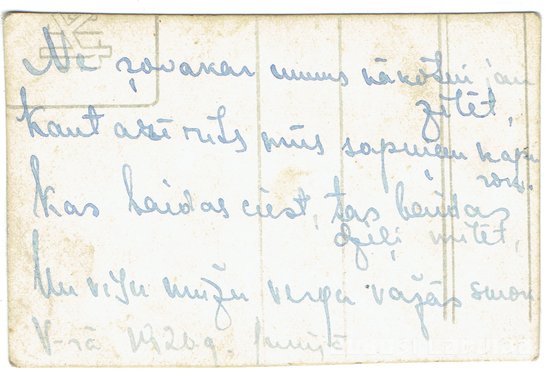 Ne šovakar mums nākotni jau
zīlēt,
kaut arī rīts mūs sapņiem kapu
roks.
Kas baidas ciest, tas baidas
dziļi mīlēt,
Un visu mužu verga važās smok
V-rā 1926 g.